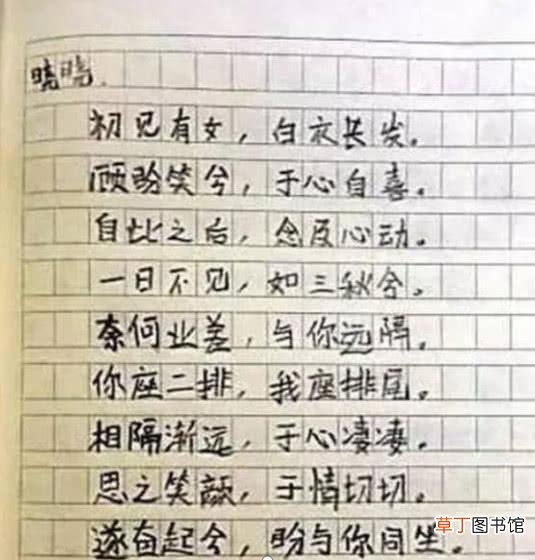 晓晓.
初见有女，白衣长发。
顾盼笑兮，于心自喜。
自此之后，念及心动。
一日不见，如三秋兮。
奈何业差，与你远隔。
你座二排，我座排尾。
相隔渐远，于心凄凄。
思之笑颜，于情切切。
遂奋起兮，盼与你同坐
草丁图书馆